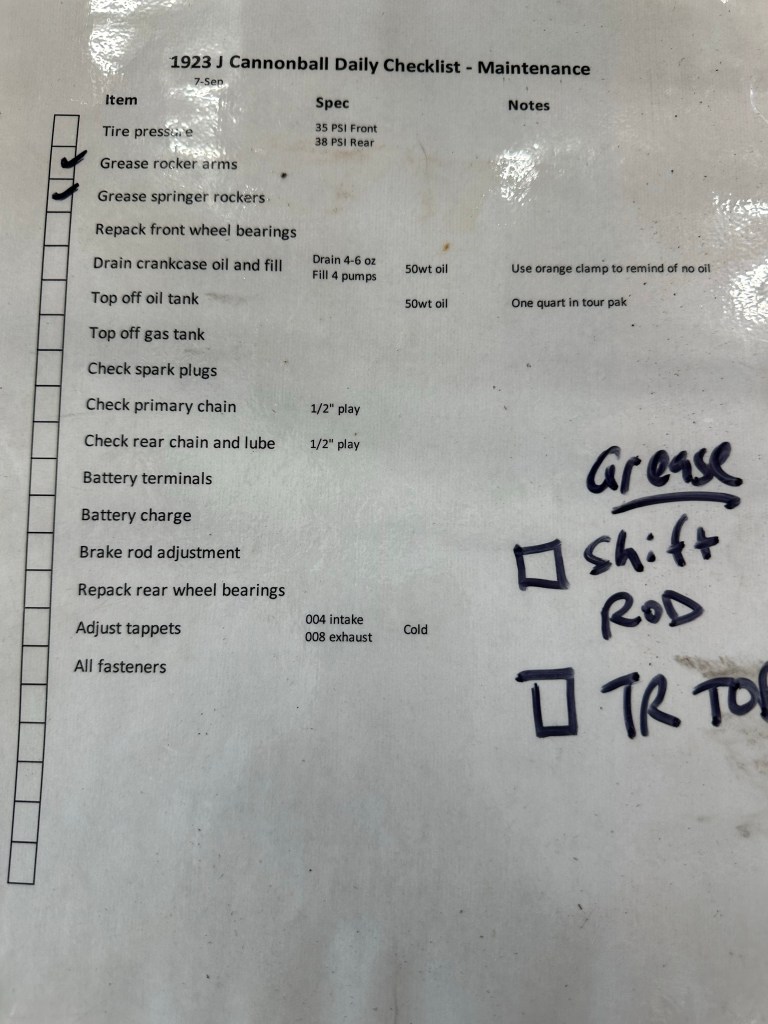 1923 J Cannonball Daily Checklist - Maintenance
7-Sep
Item Spec Notes
Tire pressure 35 PSI Front
38 PSI Rear
Grease rocker arms
Grease springer rockers
Repack front wheel bearings
Drain crankcase oil and fill Drain 4-6 oz 50wt oil Use orange clamp to remind of no oil
Fill 4 pumps
Top off oil tank 50wt oil One quart in tour pak
Top off gas tank
Check spark plugs
Check primary chain 1/2" play
Check rear chain and lube 1/2" play
Battery terminals
Battery charge
Brake rod adjustment
Repack rear wheel bearings
Adjust tappets 004 intake Cold
008 exhaust
All fasteners
Grease
Shift
ROD
TR